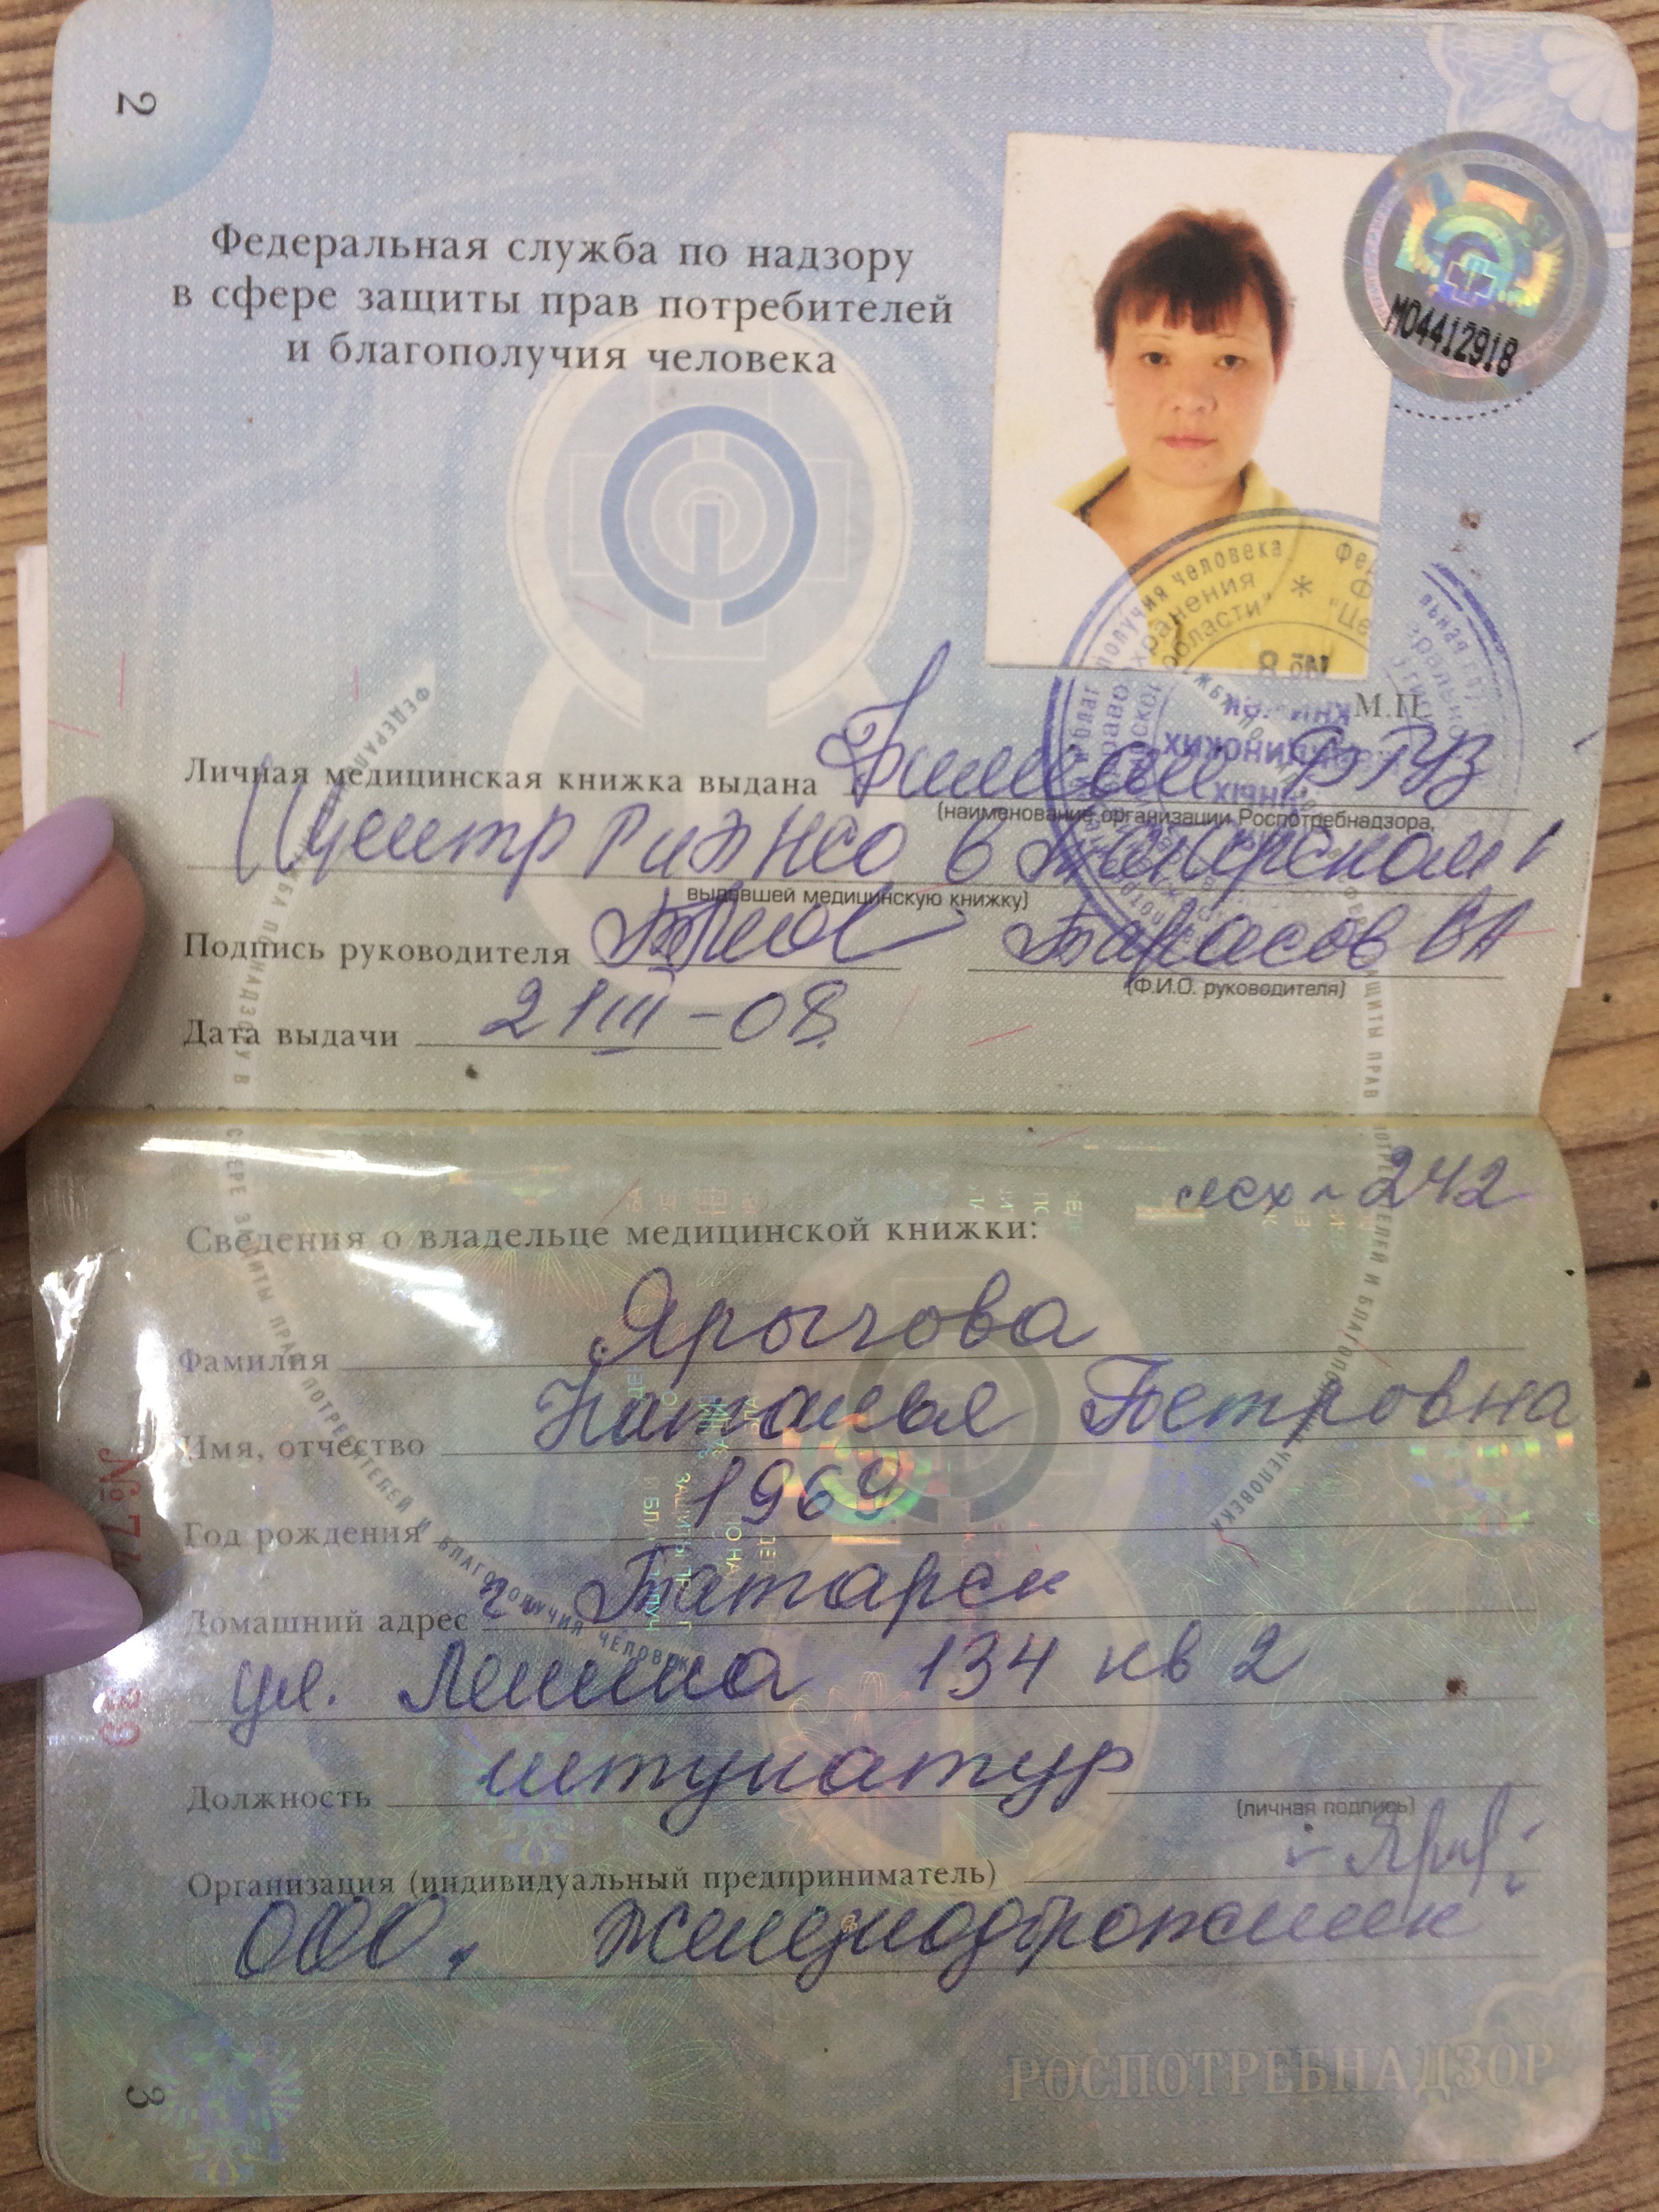 2
Федеральная служба по надзору
в сфере защиты прав потребителей
и благополучия человека
М04412918
М.П.
Личная медицинская книжка выдана Филиал ФГУЗ
(наименование организации Роспотребнадзора,
Центр ГиЭ НСО в Татарском
выдавшей медицинскую книжку)
Подпись руководителя Тарасов ВА
(Ф.И.О. руководителя)
Дата выдачи 21 III - 08.
242
Сведения о владельце медицинской книжки:
Фамилия Ярычова
Имя, отчество Наталья Петровна
Год рождения 1969
Домашний адрес г. Татарск
ул. Ленина 134 кв 2
Должность штукатур
(личная подпись)
Организация (индивидуальный предприниматель)
ООО. Железнодорожник
РОСПОТРЕБНАДЗОР
3